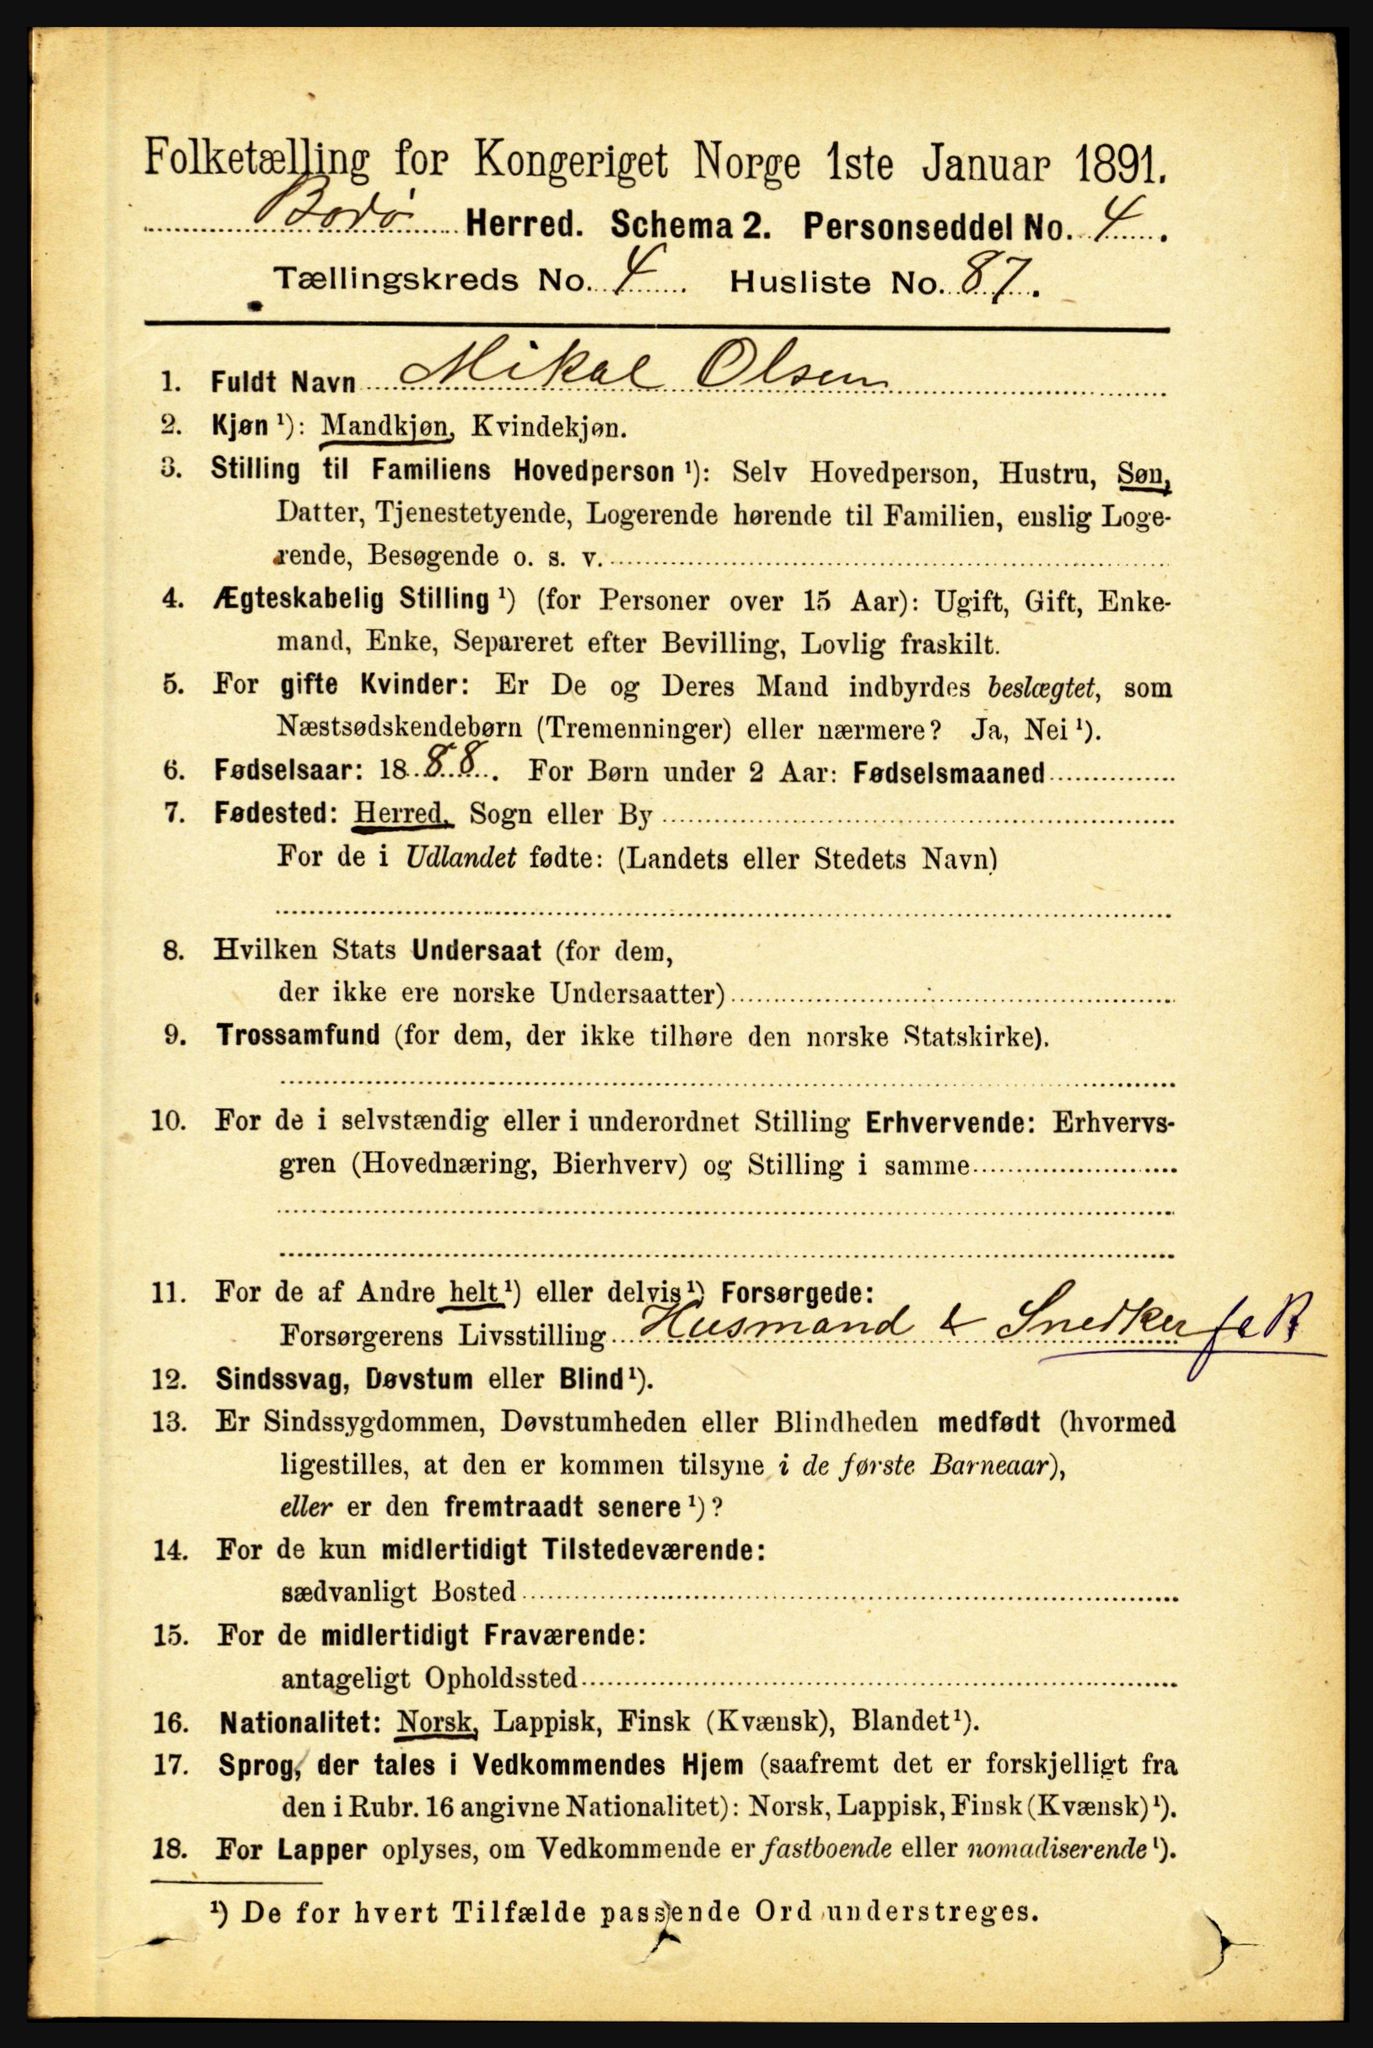 Folketælling for Kongeriget Norge 1ste Januar 1891.
Bodø Herred. Schema 2. Personseddel No. 4.
Tællingskreds No. 4. Husliste No. 87.
1. Fuldt Navn Mikal Olsen
2. Kjøn ¹): Mandkjøn, Kvindekjøn.
3. Stilling til Familiens Hovedperson ¹): Selv Hovedperson, Hustru, Søn,
Datter, Tjenestetyende, Logerende hørende til Familien, enslig Loge-
rende, Besøgende o. s. v.
4. Ægteskabelig Stilling ¹) (for Personer over 15 Aar): Ugift, Gift, Enke-
mand, Enke, Separeret efter Bevilling, Lovlig fraskilt.
5. For gifte Kvinder: Er De og Deres Mand indbyrdes beslægtet, som
Næstsødskendebørn (Tremenninger) eller nærmere? Ja, Nei ¹).
6. Fødselsaar: 1888. For Børn under 2 Aar: Fødselsmaaned
7. Fødested: Herred, Sogn eller By
For de i Udlandet fødte: (Landets eller Stedets Navn)
8. Hvilken Stats Undersaat (for dem,
der ikke ere norske Undersaatter)
9. Trossamfund (for dem, der ikke tilhøre den norske Statskirke).
10. For de i selvstændig eller i underordnet Stilling Erhvervende: Erhvervs-
gren (Hovednæring, Bierhverv) og Stilling i samme
11. For de af Andre helt ¹) eller delvis ¹) Forsørgede:
Forsørgerens Livsstilling Husmand & Snedker
12. Sindssvag, Døvstum eller Blind ¹).
13. Er Sindssygdommen, Døvstumheden eller Blindheden medfødt (hvormed
ligestilles, at den er kommen tilsyne i de første Barneaar),
eller er den fremtraadt senere ¹)?
14. For de kun midlertidigt Tilstedeværende:
sædvanligt Bosted
15. For de midlertidigt Fraværende:
antageligt Opholdssted
16. Nationalitet: Norsk, Lappisk, Finsk (Kvænsk), Blandet ¹).
17. Sprog, der tales i Vedkommendes Hjem (saafremt det er forskjelligt fra
den i Rubr. 16 angivne Nationalitet): Norsk, Lappisk, Finsk (Kvænsk) ¹).
18. For Lapper oplyses, om Vedkommende er fastboende eller nomadiserende ¹).
¹) De for hvert Tilfælde passende Ord understreges.